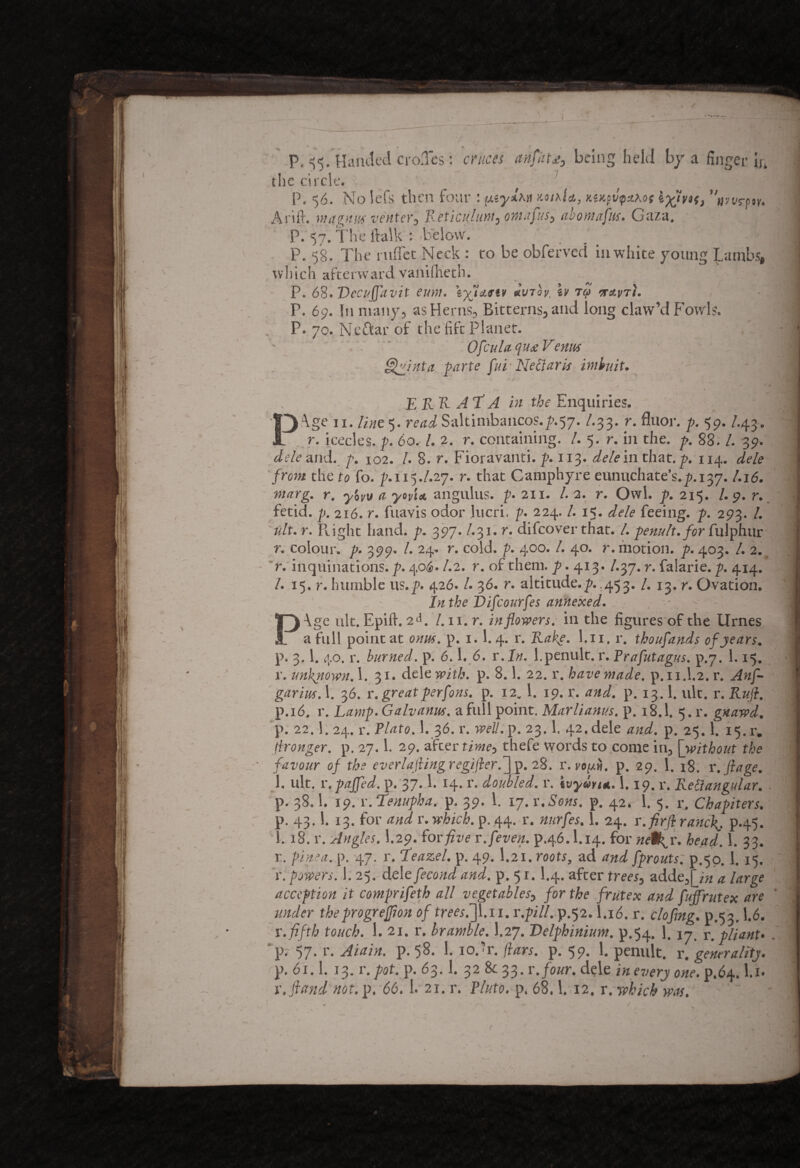 P. 55. Handed crosses : cruces ansatæ, being held by a finger in
the circle.
P. 56. No less then four : μεγάλη κοιλία, κεκρύφαλος ἐχῖνος, ἤνυστρον.
Arist. magnus venter, Reticulum, omasus, abomasus. Gaza.
P. 57. The stalk : below.
P. 58. The russet Neck : to be observed in white young Lambs,
which afterward vanisheth.
P. 68. Decussavit eum. ἐχίασεν αὐτὸν ἐν τῷ παντί.
P. 69. In many, as Herns, Bitterns, and long claw'd Fowls.
P. 70. Nectar of the fift Planet.
Oscula quæ Venus
Quinta parte sui Nectaris imbuit.
ERRATA in the Enquiries.
PAge 11. line 5. read Saltimbancos. p.57. l.33. r. fluor. p. 59. l.43.
r. icecles. p. 60. l. 2. r. containing. l. 5. r. in the. p. 88. l. 39.
dele and. p. 102. l. 8. r. Fioravanti. p. 113. dele in that. p. 114. dele
from the to fo. p.115.l.27. r. that Camphyre eunuchate's. p.137. l.16.
marg. r. γόνυ a γονία angulus. p. 211. l. 2. r. Owl. p. 215. l. 9. r.
fetid. p. 216. r. suavis odor lucri. p. 224. l. 15. dele seeing. p. 293. l.
ult. r. Right hand. p. 397. l.31. r. discover that. l. penult. for sulphur
r. colour. p. 399. l. 24. r. cold. p. 400. l. 40. r. motion. p. 403. l. 2.
r. inquinations. p. 406. l.2. r. of them. p. 413. l.37. r. salarie. p. 414.
l. 15. r. humble us. p. 426. l. 36. r. altitude. p. 453. l. 13. r. Ovation.
In the Discourses annexed.
PAge ult. Epist. 2d. l. 11. r. in flowers. in the figures of the Urnes
a full point at onus. p. 1. l. 4. r. Rake. l.11. r. thousands of years.
p. 3. l. 40. r. burned. p. 6. l. 6. r. In. l. penult. r. Prasutagus. p.7. l. 15.
r. unknown. l. 31. dele with. p. 8. l. 22. r. have made. p.11.l.2. r. Ans-
garius. l. 36. r. great persons. p. 12. l. 19. r. and. p. 13. l. ult. r. Rust.
p.16. r. Lamp. Galvanus. a full point. Marlianus. p. 18. l. 5. r. gnawd.
p. 22. l. 24. r. Plato. l. 36. r. well. p. 23. l. 42. dele and. p. 25. l. 15. r.
stronger. p. 27. l. 29. after time, these words to come in, [without the
favour of the everlasting register.] p. 28. r. νομή. p. 29. l. 18. r. stage.
l. ult. r. passed. p. 37. l. 14. r. doubled. r. εὐγώνια. l. 19. r. Rectangular.
p. 38. l. 19. r. Tenupha. p. 39. l. 17. r. Sons. p. 42. l. 5. r. Chapiters.
p. 43. l. 13. for and r. which. p. 44. r. nurses. l. 24. r. first ranck. p.45.
l. 18. r. Angles. l.29. for five r. seven. p.46. l.14. for neck r. head. l. 33.
r. pinea. p. 47. r. Teazel. p. 49. l.21. roots, ad and sprouts. p.50. l. 15.
r. powers. l. 25. dele second and. p. 51. l.4. after trees, adde, [in a large
acception it compriseth all vegetables, for the frutex and suffrutex are
under the progression of trees.] l.11. r. pill. p.52. l.16. r. closing. p.53. l.6.
r. fifth touch. l. 21. r. bramble. l.27. Delphinium. p.54. l. 17. r. pliant.
p. 57. r. Alain. p. 58. l. 10. r. stars. p. 59. l. penult. r. generality.
p. 61. l. 13. r. pot. p. 63. l. 32 & 33. r. four. dele in every one. p.64. l.1.
r. stand not. p. 66. l. 21. r. Pluto. p. 68. l. 12. r. which was.